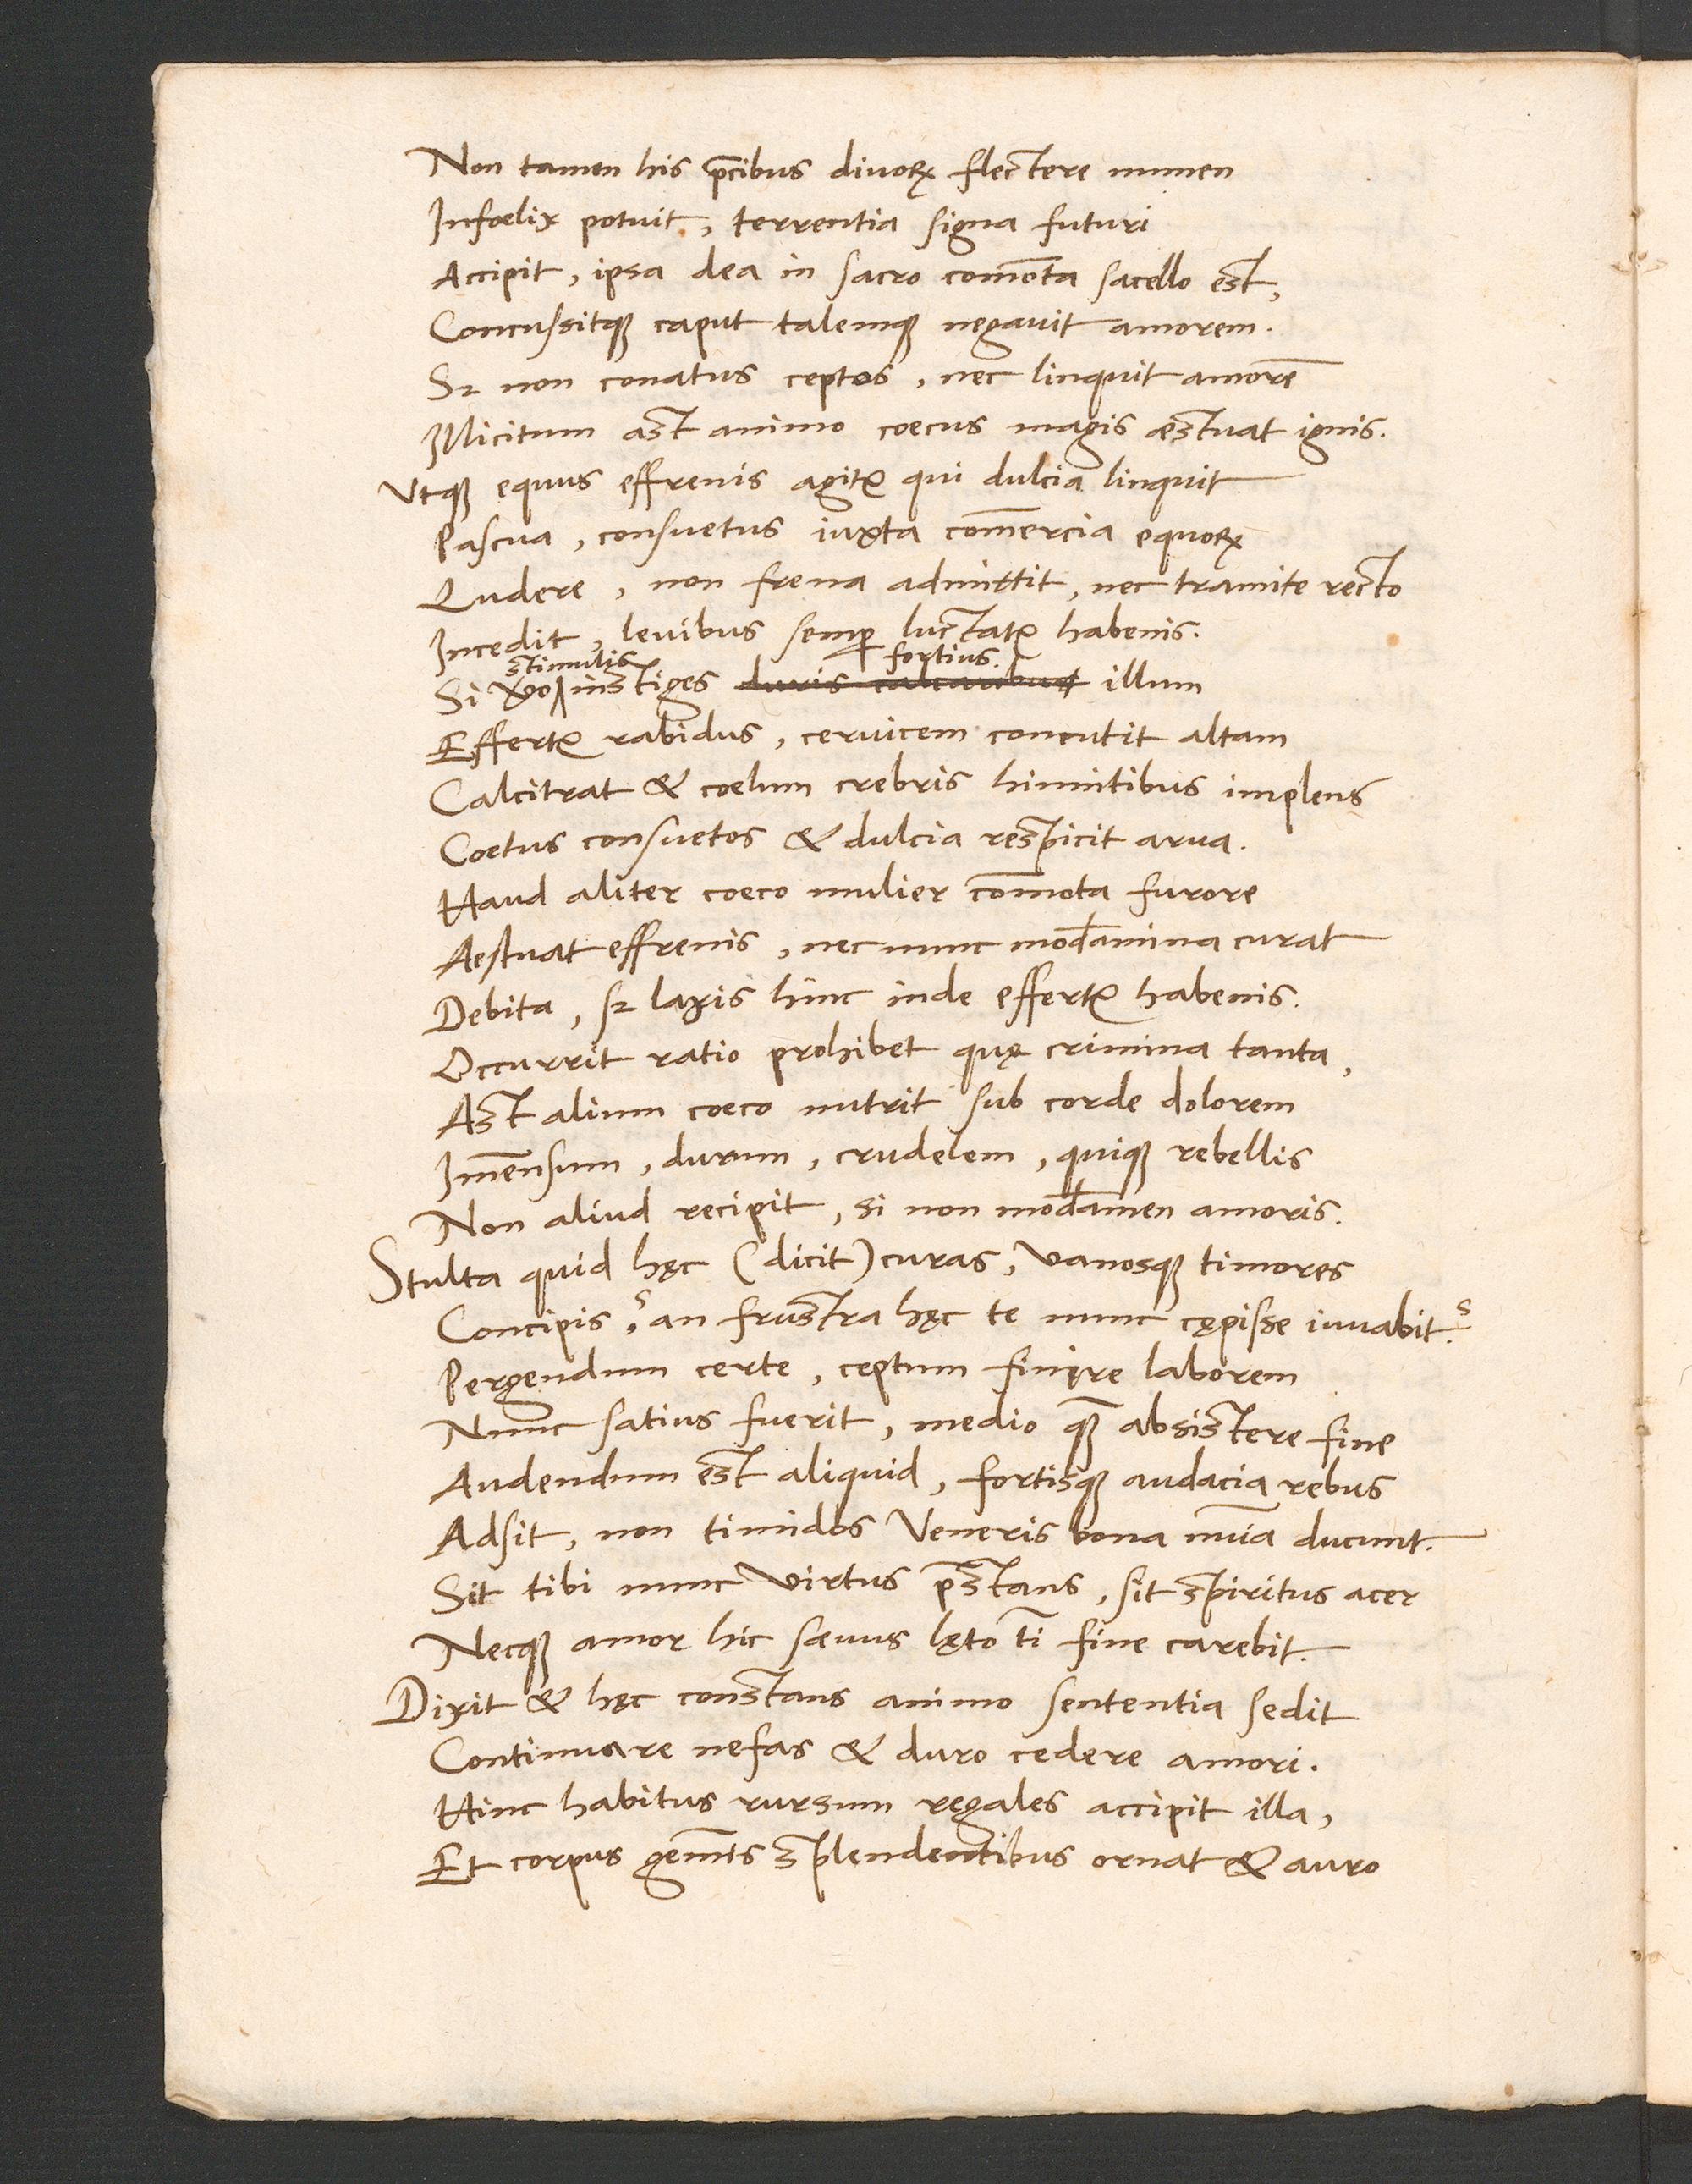 Non tamen his p̄cibus diuoꝝ flectere numen
Infœlix potuit, terrentia signa futuri
Accipit, ipsa dea in sacro com̄ota sacello est,
Concussitqꝫ caput talemqꝫ negauit amorem.
Sꝫ non conatus ceptos, nec linquit amorē
Illicitum ast animo coecus magis æstuat ignis.
Vtqꝫ equus effrenis agitᷣ qui dulcia linquit
Pascua, consuetus iuxta com̄ercia equoꝝ
Ludere, non frena admittit, nec tramite recto
Incedit, leuibus semꝑ luctatᷣ habenis.
stimulis fortius.
Si vo instiges duris calcaribus illum
Effertᷣ rabidus, ceruicem concutit altam
Calcitrat & coelum crebris hinnitibus implens
Coetus consuetos & dulcia respicit arua.
Haud aliter coeco mulier com̄ota furore
Aestuat effrenis, nec nunc mod̄amina curat
Debita, sꝫ laxis hinc inde effertᷣ habenis.
Occurrit ratio prohibet quę crimina tanta,
Ast alium coeco nutrit sub corde dolorem
Im̄ensum, durum, crudelem, quiqꝫ rebellis
Non aliud recipit, si non mod̄amen amoris.
Stulta quid hęc (dicit) curas, vanosqꝫ timores
Concipis? an frustra hęc te nunc cępisse iuuabit?
Pergendum certe, ceptum finire laborem
Nunc satius fuerit, medio qꝫ absistere fine
Audendum est aliquid, fortisqꝫ audacia rebus
Adsit, non timidos Veneris bona mūia ducunt.
Sit tibi nunc virtus p̄stans, sit spiritus acer
Necqꝫ amor hic sæuus lęto tī fine carebit.
Dixit & hęc constans animo sententia sedit
Continuare nefas & duro cedere amori.
Hinc habitus rursum regales accipit illa,
Et corpus gem̄is splendentibus ornat & auro